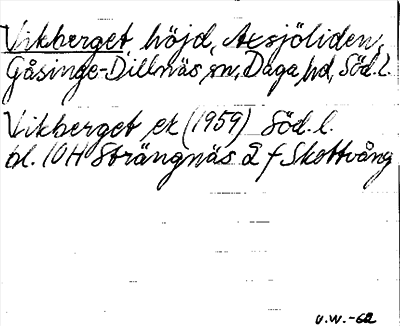 Vikberget, höjd, Axsjöliden,
Gåsinge-Dillnäs sn, Daga hd, Söd. l.
Vikberget ek (1959) Söd. l.
bl. 10H Strängnäs 2 f Skottvång
V.W.-62